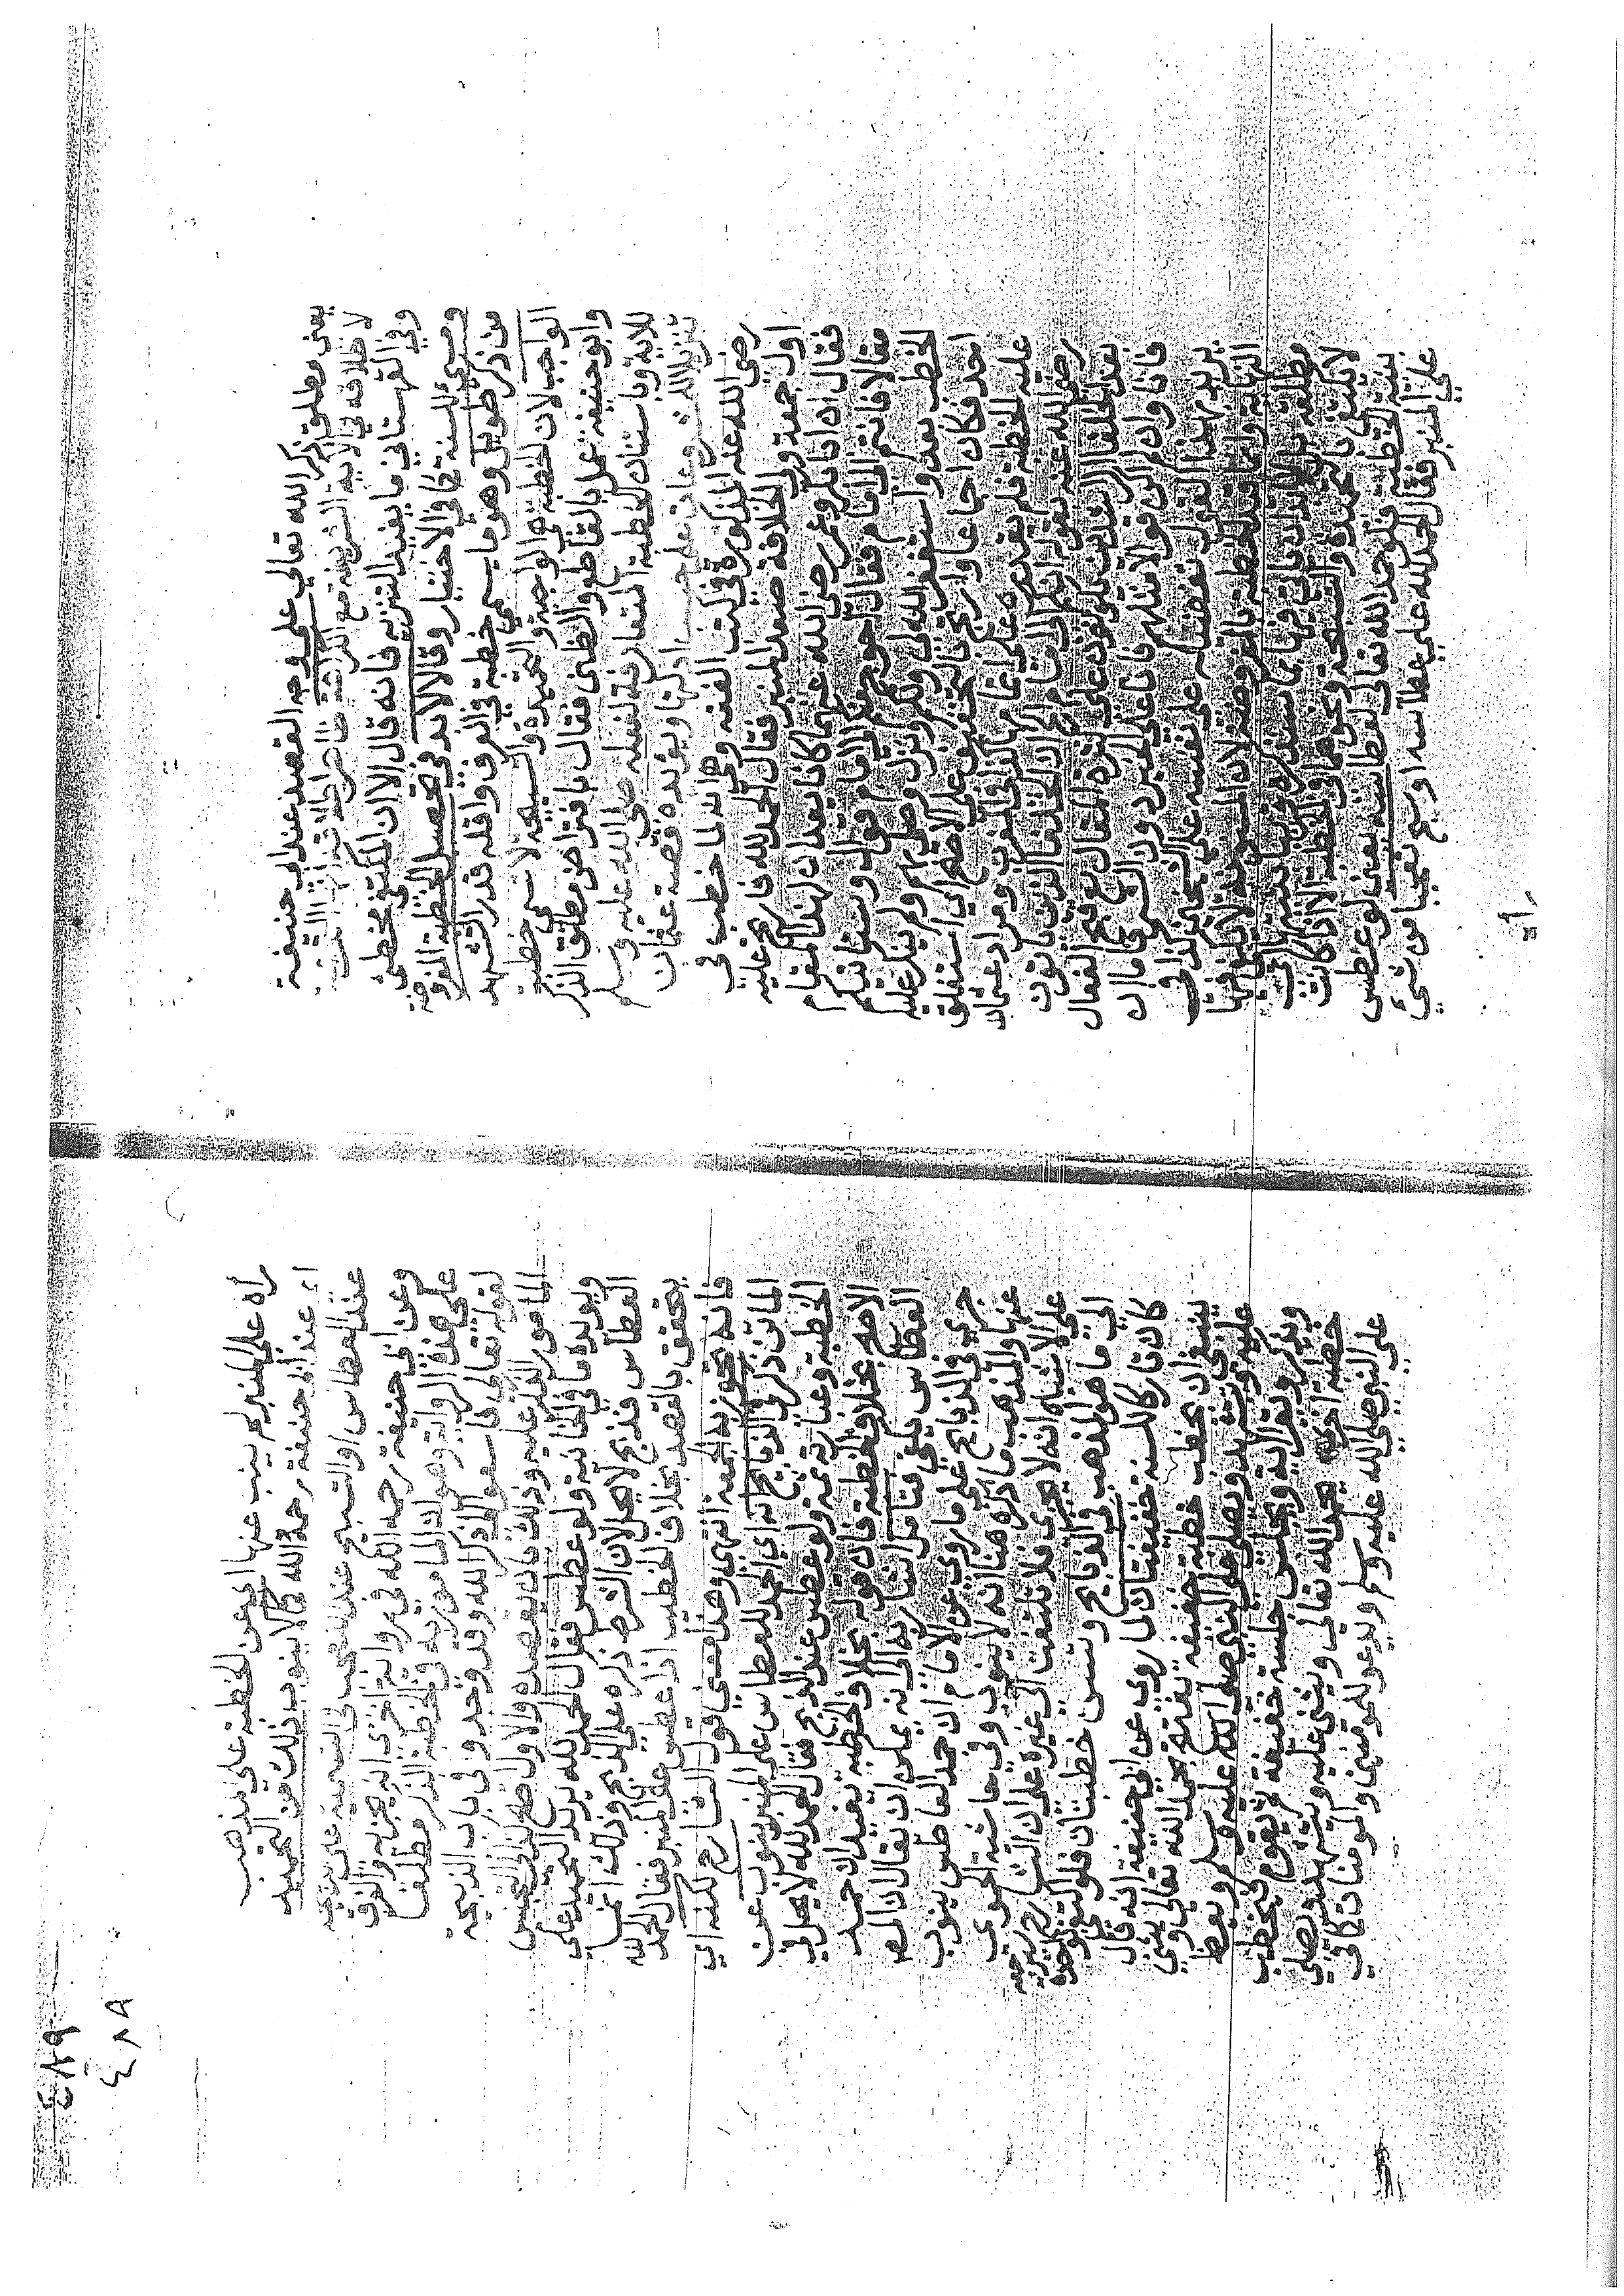 يعني مطلق ذكر الله تعالى على وجه القصد عند ابي حنيفة
لاطلاقه في الاية الشريفة مع
وفي القهستاني ما يفيد التنزيه فانه قال الا ان المكتفي مخطئ
ومسيئ للسنة كما في الاختيار وقالا لابد في تحصيل الخطبة المفروضة
من ذكر طويل وهو ما يسمى خطبة في العرف واقله قدر التشهد
الواجب لان الخطبة هي الواجبة والتحميدة والتسبيحة لا تسمى خطبة
وابو حنيفة عمل بالقاطع والظني فقال بافتراض مطلق الذكر
للاية وباستنان الخطبة المتعارفة لفعله صلى الله عليه وسلم
تنزيلا للمشروعات على حسب ادلتها ويؤيده قصة عثمان
رضي الله عنه المذكورة في كتب الفقه وهي انه لما خطب في
اول جمعة ولي الخلافة صعد المنبر فقال الحمد لله فارتج عليه
فقال ان ابا بكر وعمر رضي الله عنهما كانا يعدان لهذا المقام
مقالا فانتم الى امام فعال احوج منكم الى امام قوال وستاتيكم
الخطب بعد واستغفر الله لي ولكم ونزل وصلى بهم ولم ينكر عليه
احد فكان اجماعا وارتج بالتخفيف على الاصح اي استغلق
عليه الخطبة فلم يقدر على اتمامها كذا في المغرب ومراد عثمان
رضي الله عنه بقوله انكم الى امام الخ ان الخلفا الذين ياتون
بعد الخلفا الراشدين يكونون على كثرة المقال مع قبح الفعال
فانا وان لم اكن قوالا مثلهم فانا على الخير دون الشر فاما ان
يريد بهذا القول تفضيله على نفسه على الشيخين فلا كذا في
النهاية
مطلقة
لا يكتفي بالتحميدة والتسبيحة ونحوهما في الخطبة الا اذا كانت
بنية الخطبة فلو حمد الله تعالى لعطاسه يعني لو عطس
على المنبر فقال الحمد لله على عطاسه او سبح تعجبا من شيئ
٤٨٩
٤٨٩
راه على المنبر لم ينب عنها اي عن الخطبة على مذهب
اي عند ابي حنيفة رحمه الله كما لا ينوب ذلك من التحميد
عند العطاس او التسبيح عند التعجب في التسمية على ذبيحه
وعن ابي حنيفة رحمه الله في رواية اخرى انه يجزيه والفرق
على هذه الرواية وهو ان المامور به في الخطبة الذكر مطلقا
لقوله تعالى فاسعوا الى ذكر الله وقد وجد وفي باب الذبيحة
المامور الذكر عليه وذلك بان يقصده والاول اصح كذا في التجنيس
ويؤيده ما في الخانية ولو عطس فقال الحمد لله يريد التحميد على
العطاس فذبح لا يحل لان الشرط ذكره على الذبح وذلك انما
يتحقق بالقصد بخلاف الخطيب اذا عطس على المنبر فقال الحمد لله
فانه يجوز به الجمعة انتهى وهذا معنى قول الشارح لكنه اي
الماتن ذكر في الذبائح انه اي الحمد للعطاس على المنبر ينوب عن
الخطبة وعبارته ثمة ولو عطس عند الذبح فقال الحمد لله لا يحل في
الاصح بخلاف الخطبة فان قوله بخلاف الخطبة يفيد ان حمد
العطاس يكفي فتامل اشار به الى انه يمكن ان يقال ان المصـ
جرى في الذبائح على ما روي عن الامام ان حمد العاطس ينوب
عنها والمذهب ما ذكره هنا انه لا ينوب وفي حاشية الحموي
على الاشباه انه لا يجزي فلا تلتفت الى غيره على ان الشارح
الى ما هو المذهب في الذبائح وتسن خطبتان فلو اكتفى بواحدة
كان تاركا للسنة خفيفتان لما روي عن ابي حنيفة انه قال
ينبغي ان يخطب خطبة خفيفة يفتتح بحمد الله تعالى ويثني
عليه ويتشهد ويصلي على النبي صلى الله عليه وسلم ويعظ
ويذكر ويقرا اية ويجلس جلسة خفيفة ثم يقوم فيخطب
خطبة اخرى يحمد الله تعالى ويثني عليه ويتشهد ويصلي
على النبي صلى الله عليه وسلم ويدعو للمومنين والمومنات كما في